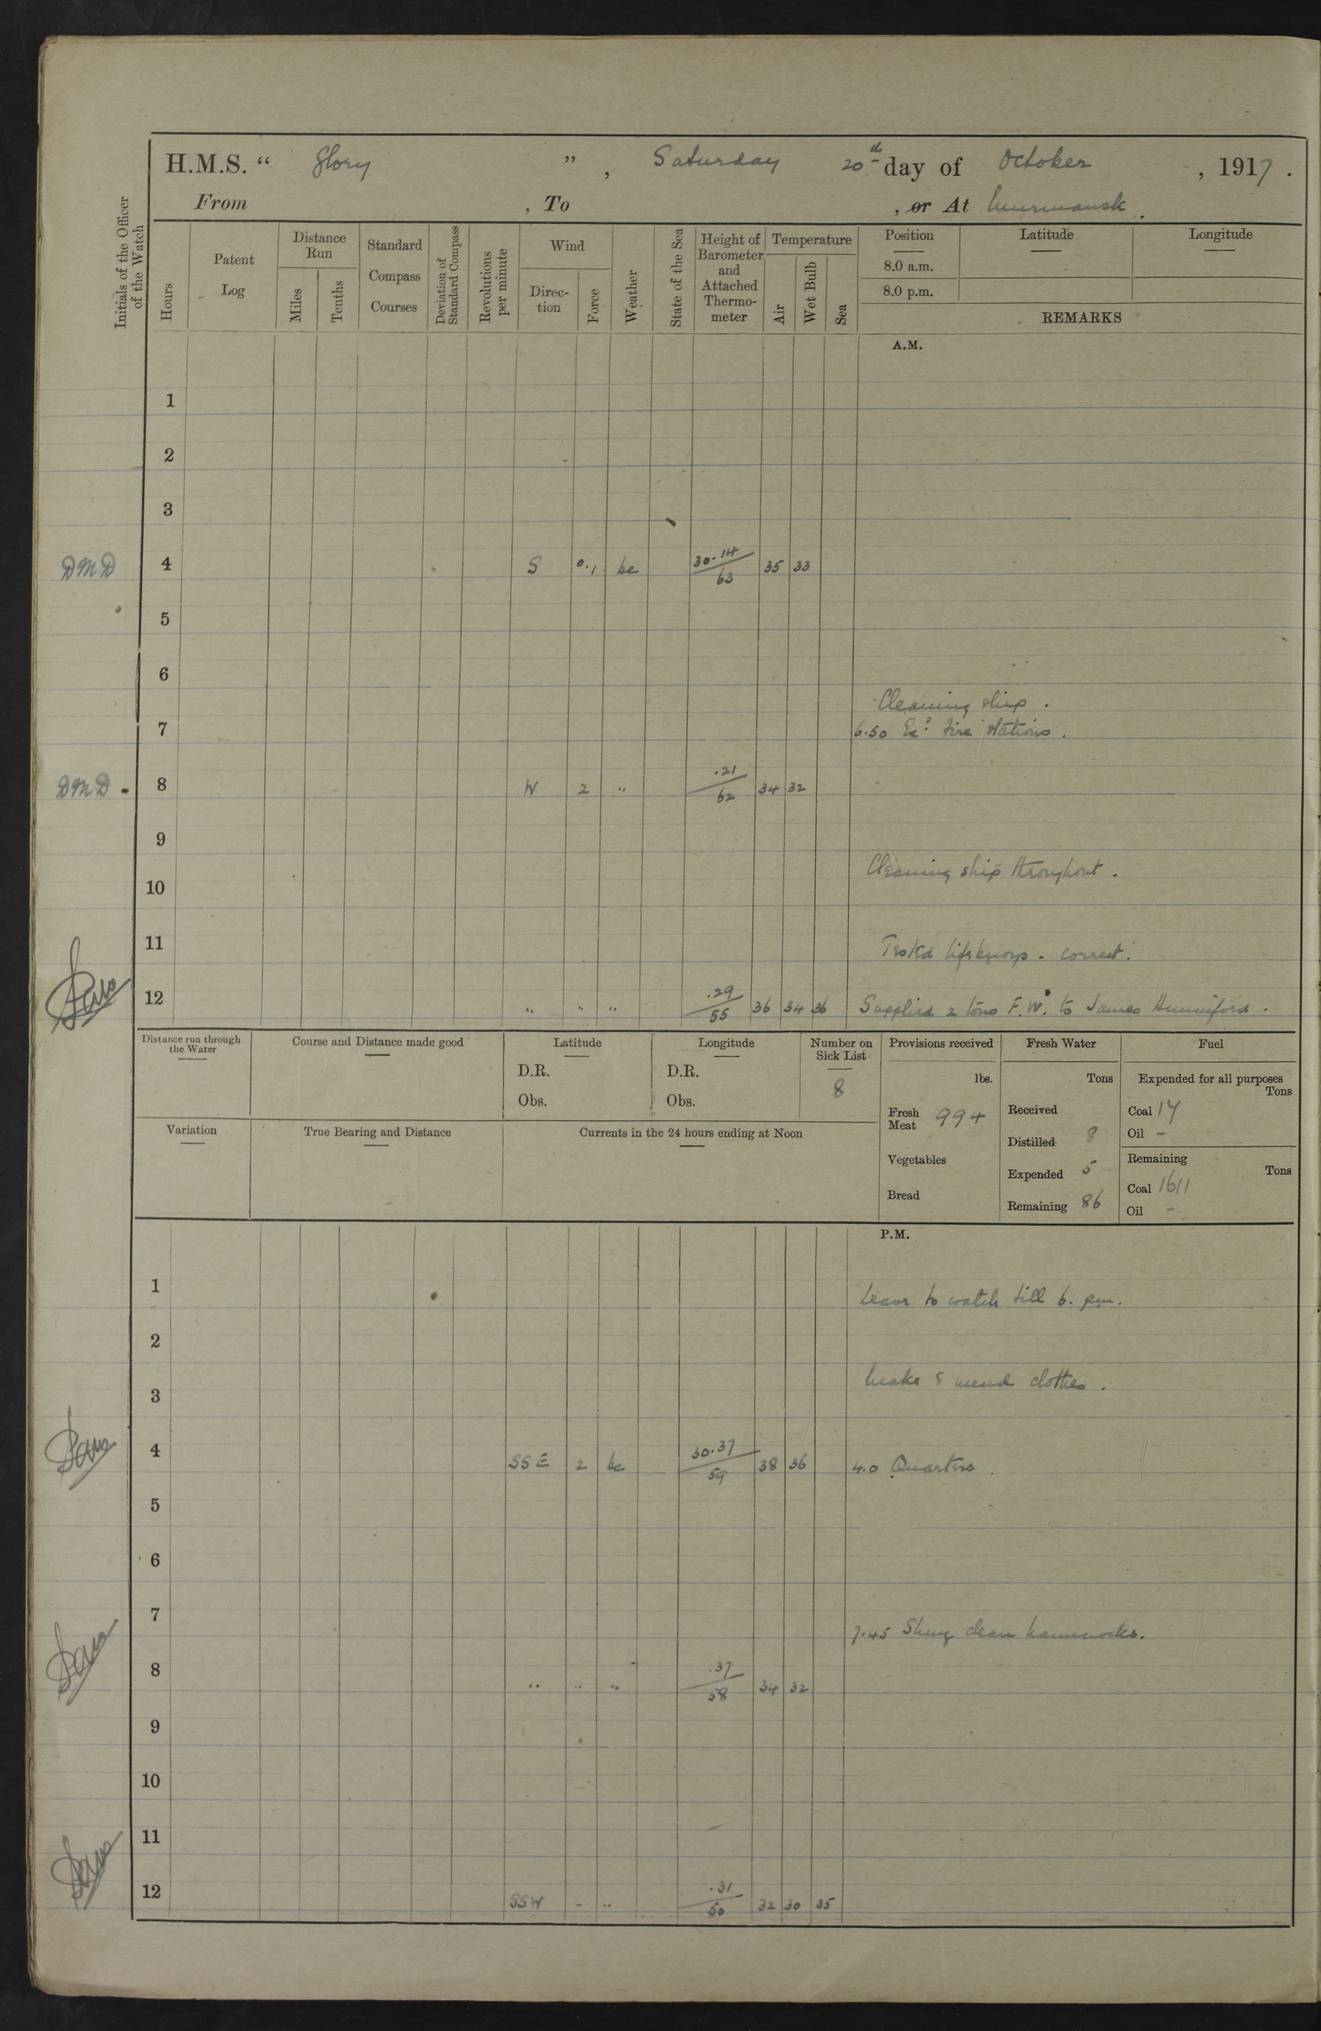 H.M.S. “ Glory ” , Saturday 20th day of October , 1917 .
From , To , or At Murmansk .
Initials of the Officer of the Watch
Hours
Patent Log
Distance Run
Miles
Tenths
Standard Compass Courses
Deviation of Standard Compass
Revolutions per minute
Wind
Direc-tion
Force
Weather
State of the Sea
Height of Barometer and Attached Thermo-meter
Temperature
Air
Wet Bulb
Sea
Position
Latitude
Longitude
8.0 a.m.
8.0 p.m.
REMARKS
A.M.
1
2
3
DMD 4 S 0.1 bc 30.14/63 35 33
5
6
Cleaning ship .
7 6.50 Exd Fire Stations .
DMD . 8 W 2 " .21/62 34 32
9
Cleaning ship throughout .
10
11 Tested lifebuoys . correct .
12 " " " .29/55 36 34 36 Supplied 2 tons F.W. to James Hunniford .
Distance run through the Water
Course and Distance made good
Latitude
D.R.
Obs.
Longitude
D.R.
Obs.
Number on Sick List
8
Variation
True Bearing and Distance
Currents in the 24 hours ending at Noon
Provisions received
lbs.
Fresh Meat 994
Vegetables
Bread
Fresh Water
Tons
Received
Distilled 8
Expended 5
Remaining 86
Fuel
Expended for all purposes
Tons
Coal 14
Oil -
Remaining
Tons
Coal 1611
Oil -
P.M.
1 Leave to watch till 6. pm.
2
3 Make & mend clothes .
4 SSE 2 bc 30.37/59 38 36 4.0 Quarters .
5
6
7 7.45 Slung clean hammocks.
8 " " " .37/58 34 32
9
10
11
12 SSW - " .31/50 32 30 35